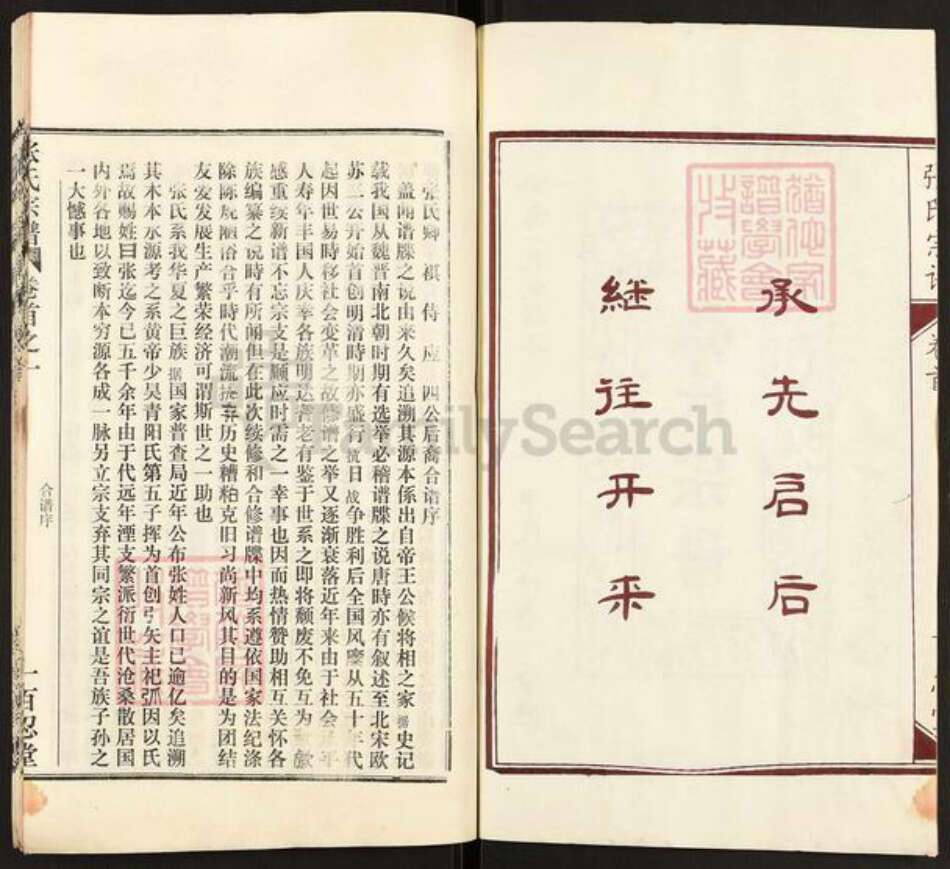 承先启后
继往开来
张氏宗谱
卷首
张氏卿祺侍应四公后裔合谱序
盖闻谱牒之说由来久矣追溯其源本係出自帝王公候将相之家据史记
载我国从魏晋南北朝时期有选举必稽谱牒之说唐時亦有叙述至北宋欧
苏二公开始首创明清時期亦盛行抗日战争胜利后全国风靡从五十年代
起因世易時移社会变革之故修谱之举又逐渐衰落近年来由于社会平
人寿年丰国人庆幸各族明达耆老有鉴于世系之即将颓废不免互为歉
感重续新谱不忘宗支是顺应时需之一幸事也因而热情赞助相互关怀各
族编纂之说時有所闻但在此次续修和合修谱牒中均系遵依国家法纪涤
除陈规陋俗合乎時代潮流摈弃历史糟粕克旧习尚新风其目的是为团结
友爱发展生产繁荣经济可谓斯世之一助也
张氏系我华夏之巨族据国家普查局近年公布张姓人口已逾亿矣追溯
其木本水源考之系黄帝少昊青阳氏第五子挥为首创弓矢主祀弧因以氏
焉故赐姓曰张迄今已五千余年由于代远年湮支繁派衍世代沧桑散居国
内外各地以致断本穷源各成一脉另立宗支弃其同宗之谊是吾族子孙之
一大憾事也
张氏宗谱
卷首之一
合谱序
一百忍堂
FamilySearch